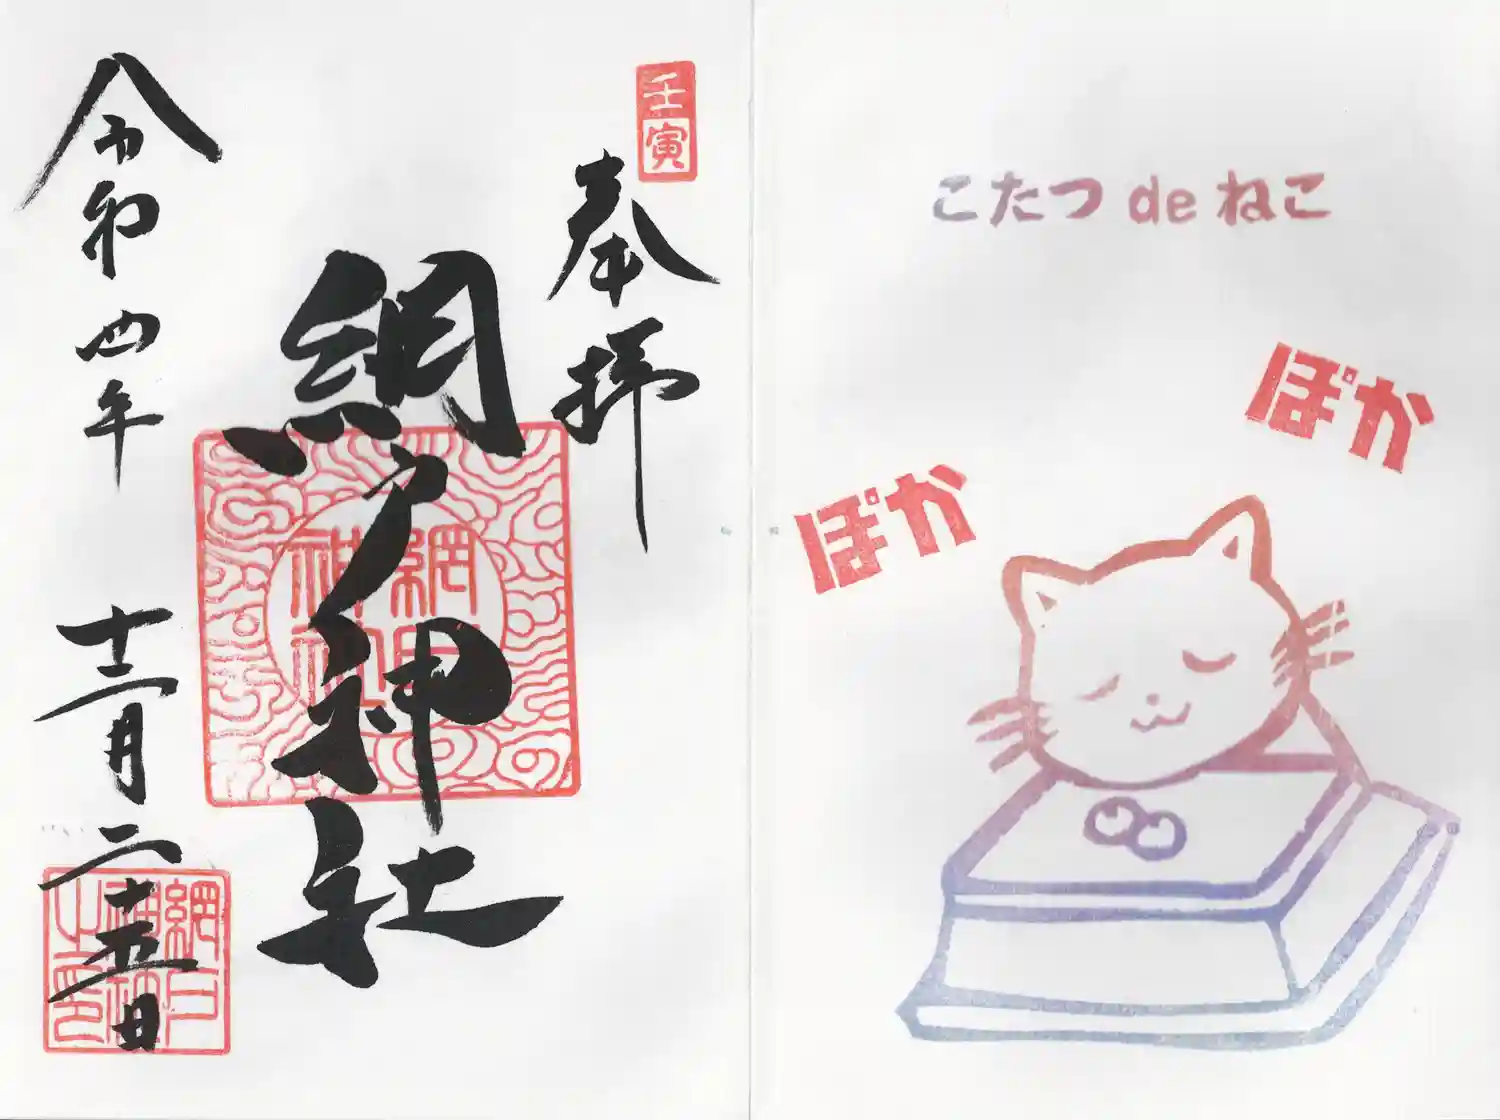 こたつ de ねこ
ぽか
ぽか
壬寅
奉拝
網戸神社
網戸神社
令和四年 十二月二十五日
網戸神社之印